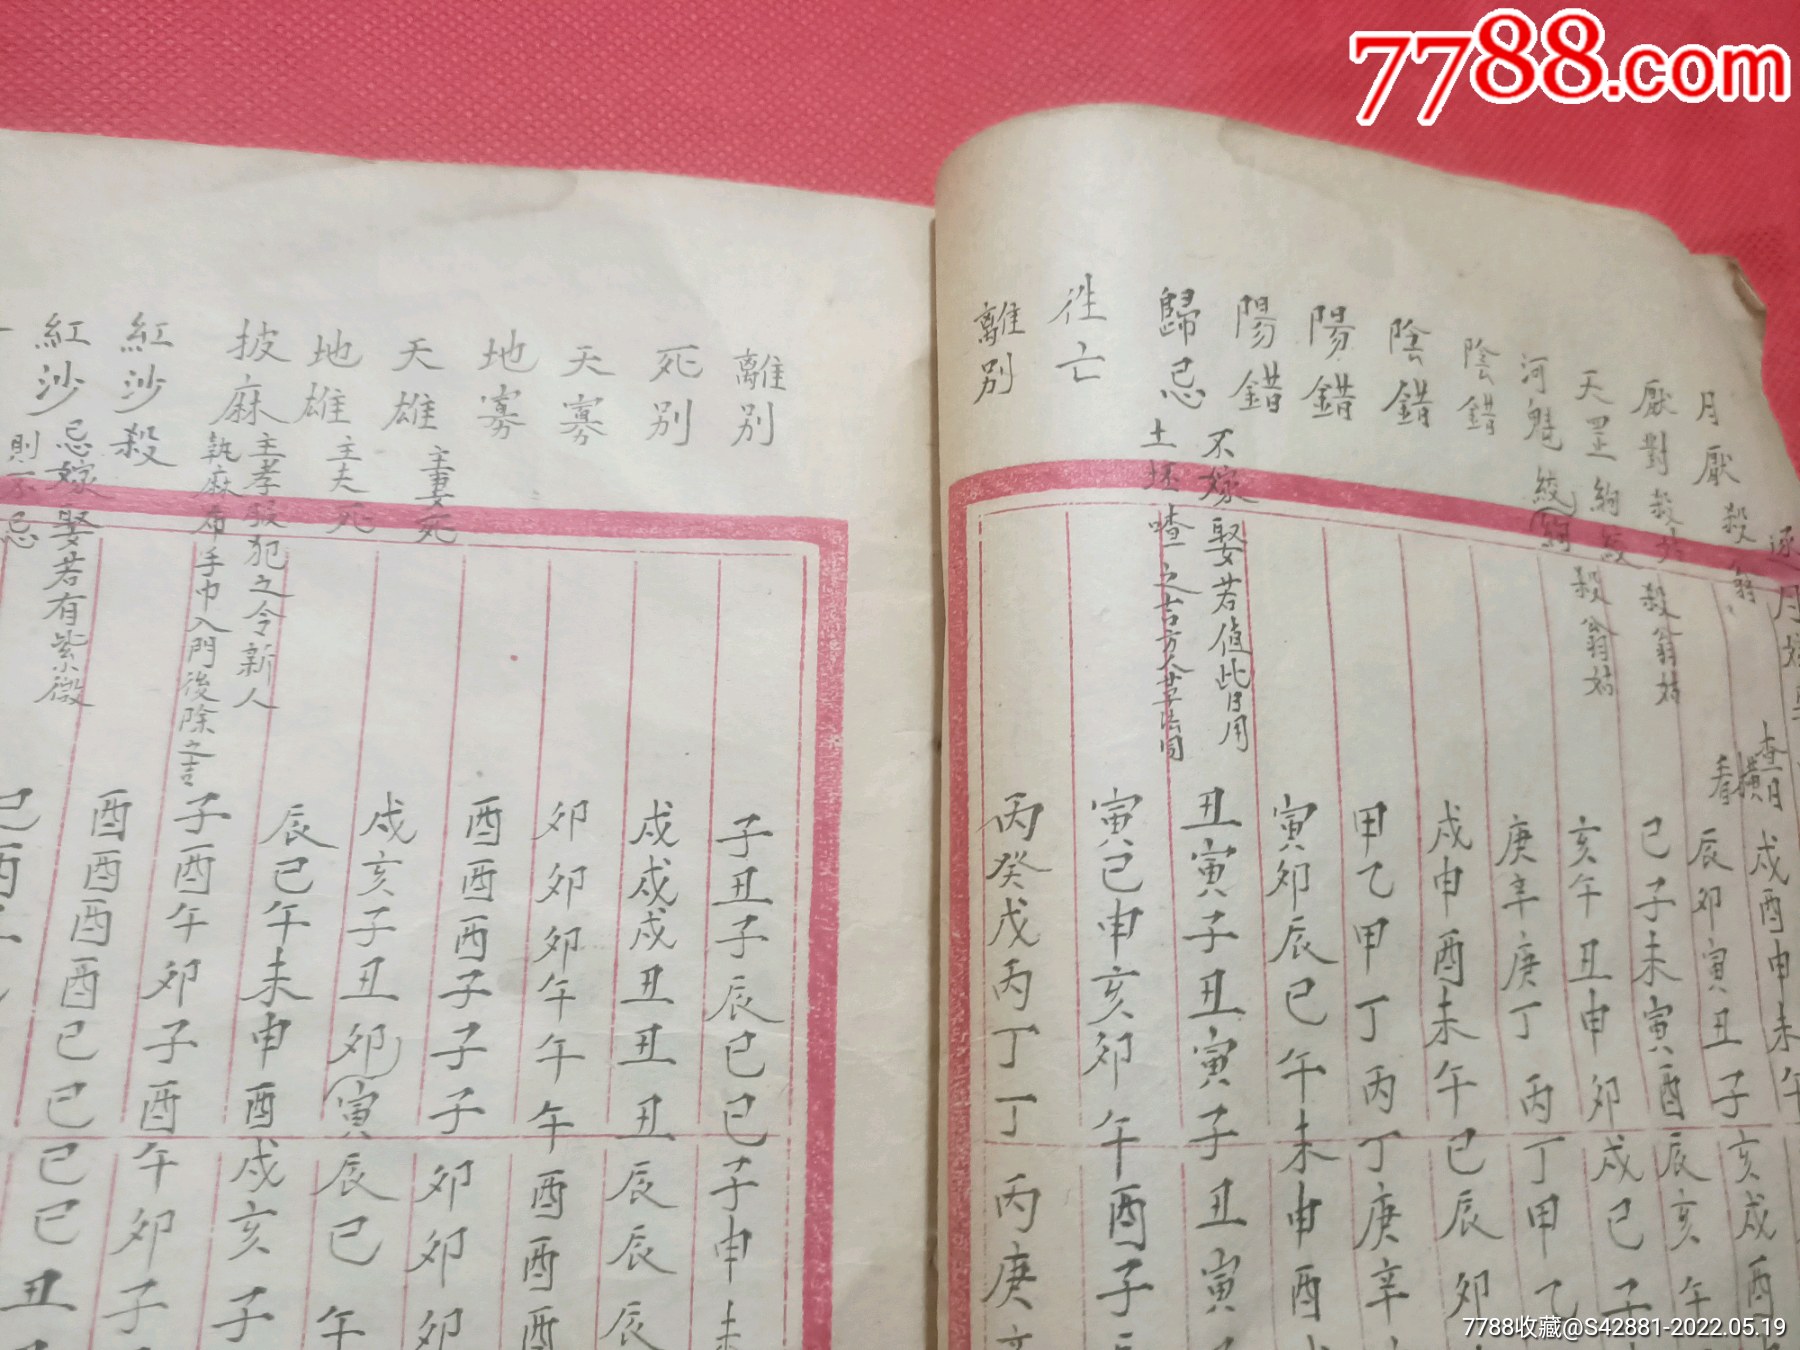 7788.com
逐月嫁
查橫看日
戌酉申未午
月厭殺翁
辰卯寅丑子亥戌酉
厭對殺姑殺翁姑
己子未寅酉辰亥午
天罡絢絞殺翁姑
亥午丑申卯戌巳子
河魁絞絢
庚辛庚丁丙丁甲乙
陰錯
戌申酉未午巳辰卯
陰錯
甲乙甲丁丙丁庚辛
陽錯
寅卯辰巳午未申酉
陽錯
不嫁娶若值此日用
丑寅子丑寅子丑寅
歸忌
土坯喳之吉
寅巳申亥卯午酉子
往亡
丙癸戊丙丁丁丙庚
離別
離別
子丑子辰巳巳子申未
死別
戌戌戌丑丑丑辰辰辰
天寡
卯卯卯午午午酉酉酉
地寡
酉酉酉子子子卯卯卯
天雄主妻死
戌亥子丑卯寅辰巳午
地雄主夫死
辰巳午未申酉戌亥子
披麻主孝服犯之令新人
執麻布手巾入門後除之吉
子酉午卯子酉午卯子
紅沙殺
酉酉酉酉巳巳巳巳丑
紅沙忌嫁娶若有紫微
則不忌
巳酉
7788收藏@S42881-2022.05.19